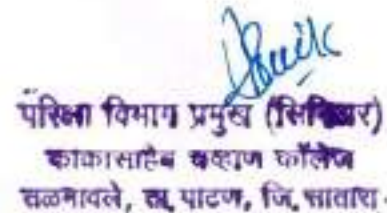 परिक्षा विभाग प्रमुख (सिनिअर)
काकासाहेब चव्हाण कॉलेज
तळमावले, ता. पाटण, जि. सातारा.